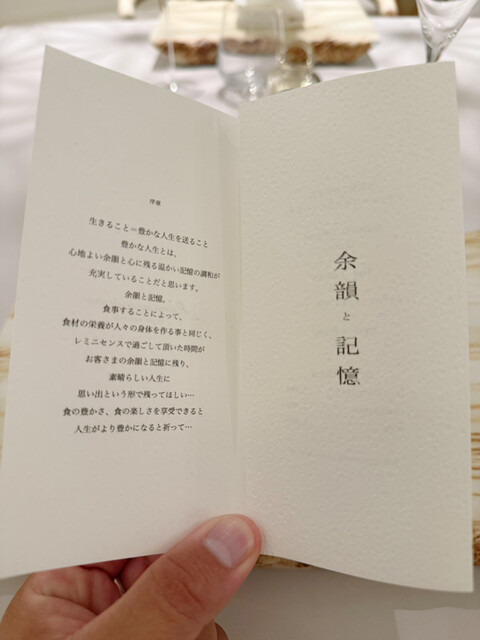 序章
生きること＝豊かな人生を送ること
豊かな人生とは、
心地よい余韻と心に残る温かい記憶の調和が
充実していることだと思います。
余韻と記憶。
食事することによって、
食材の栄養が人々の身体を作る事と同じく、
レミニセンスで過ごして頂いた時間が
お客さまの余韻と記憶に残り、
素晴らしい人生に
思い出という形で残ってほしい…
食の豊かさ、食の楽しさを享受できると
人生がより豊かになると祈って…
余韻と記憶